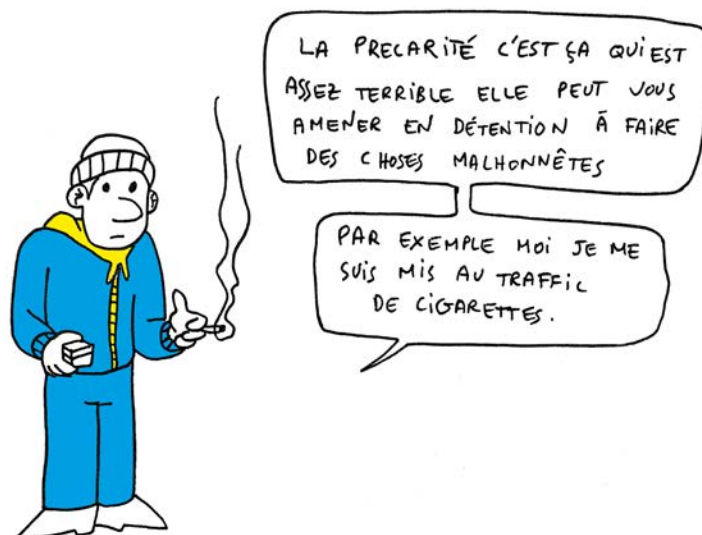 LA PRECARITÉ C'EST ÇA QUI EST
ASSEZ TERRIBLE ELLE PEUT VOUS
AMENER EN DÉTENTION À FAIRE
DES CHOSES MALHONNÊTES
PAR EXEMPLE MOI JE ME
SUIS MIS AU TRAFFIC
DE CIGARETTES.